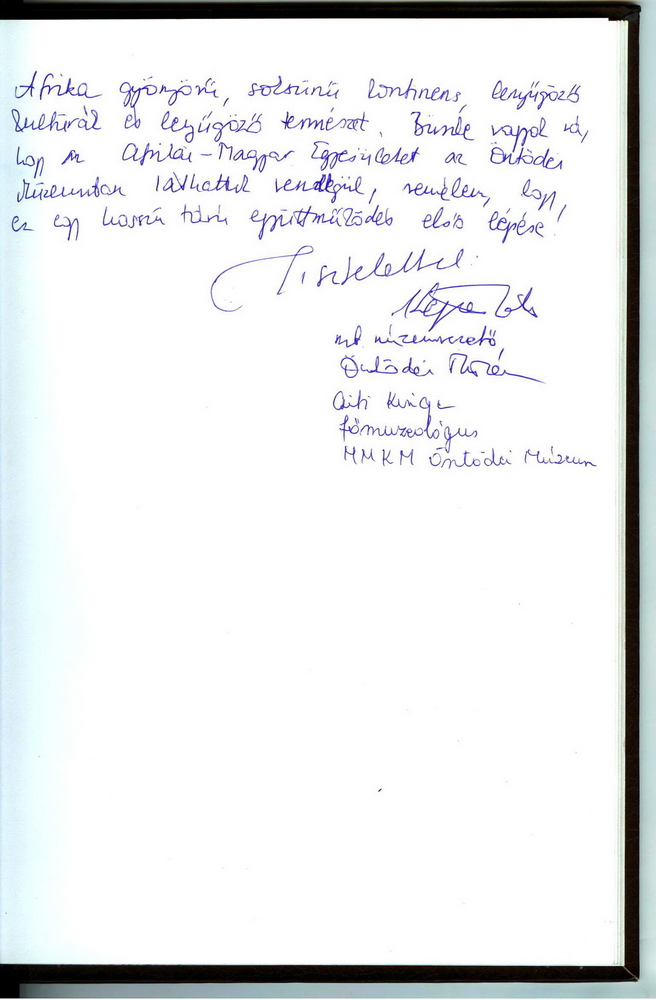 Afrika gyönyörű, sokszínű kontinens, lenyűgöző
kultúrák és lenyűgöző természet. Büszke vagyok rá,
hogy az Afrikai-Magyar Egyesületet az Öntödei
Múzeumban láthattuk vendégül, remélem, hogy
ez egy hosszú távú együttműködés első lépése!
Tisztelettel:
mb múzeumvezető,
Öntödei Múzeum
Kinga
főmuzeológus
MMKM Öntödei Múzeum